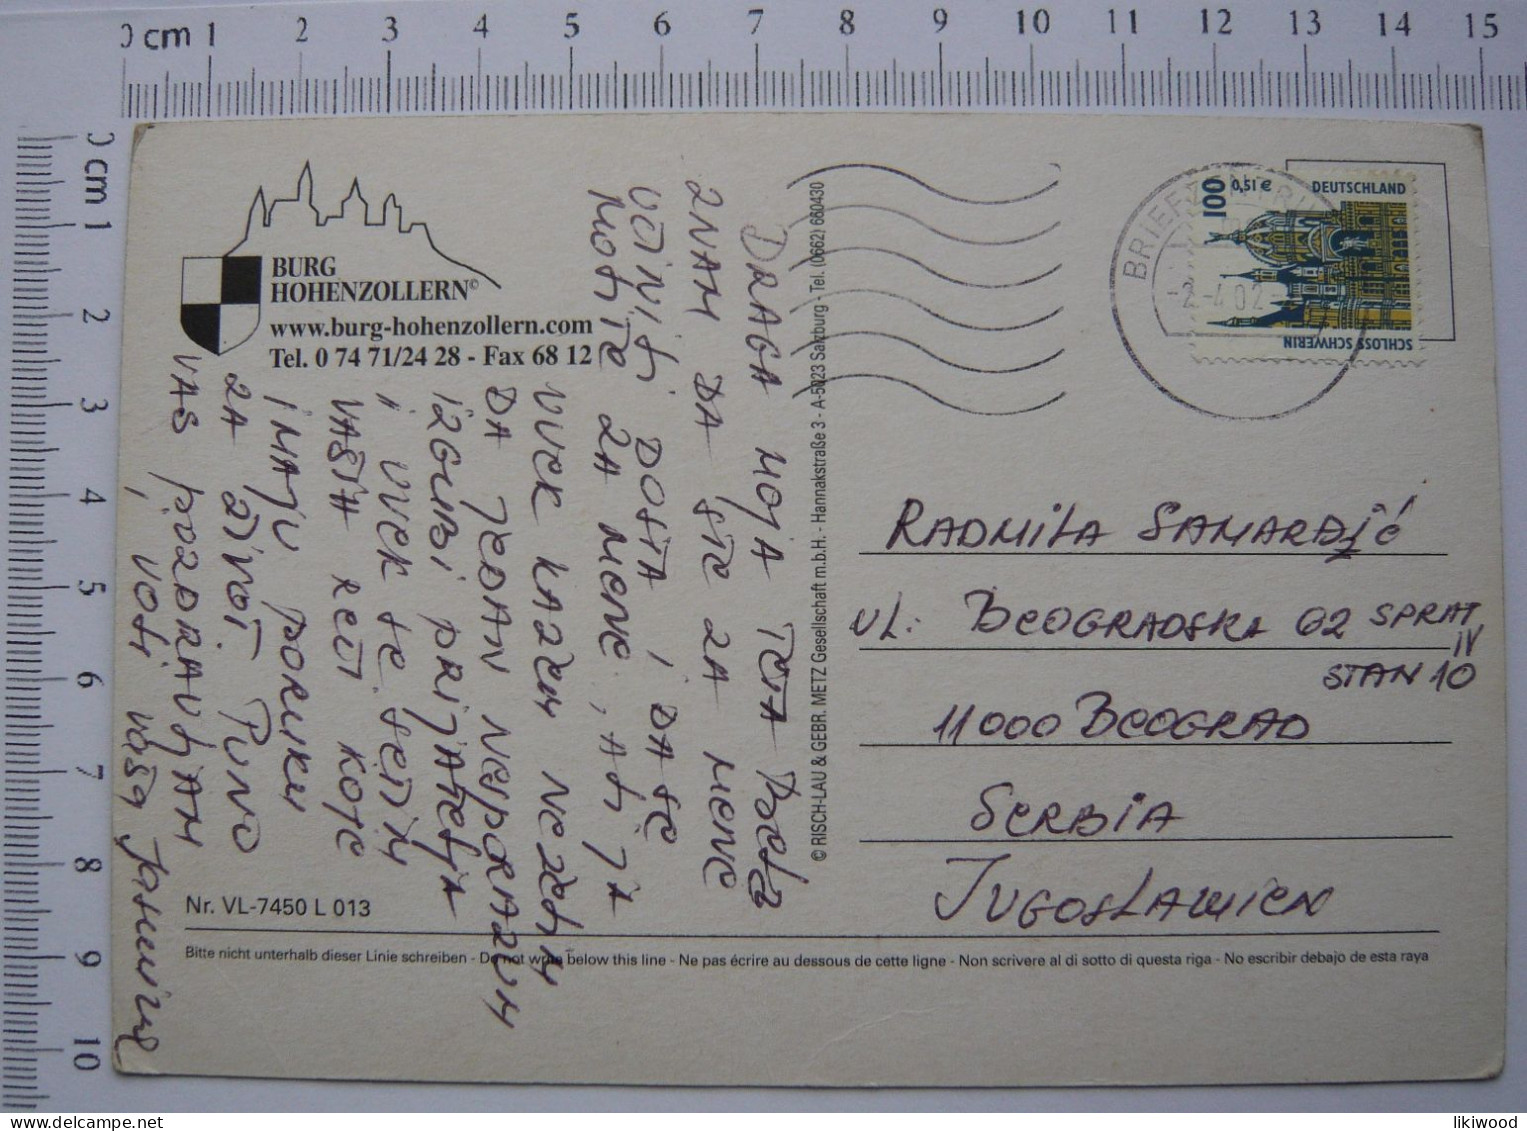 0 cm 1 2 3 4 5 6 7 8 9 10 11 12 13 14 15
0 cm 1 2 3 4 5 6 7 8 9 10
BURG
HOHENZOLLERN©
www.burg-hohenzollern.com
Tel. 0 74 71/24 28 - Fax 68 12
DRAGA MOJA TETA
ZNAM DA STE ZA MENE
DOSTA I DA SE
MOLITE ZA MENE, ALI JA
UVEK KAŽEM NEŽELIM
DA JEDAN NESPORAZUM
IZGUBI PRIJATELJA
I UVEK SE SETIM
VAŠIH REČI KOJE
IMAJU PORUKU
ZA ŽIVOT. PUNO
VAS POZDRAVLJAM
I VOLI VAŠA
Nr. VL-7450 L 013
Bitte nicht unterhalb dieser Linie schreiben - Do not write below this line - Ne pas écrire au dessous de cette ligne - Non scrivere al di sotto di questa riga - No escribir debajo de esta raya
© RISCH-LAU & GEBR. METZ Gesellschaft m.b.H. - Hannakstraße 3 - A-5023 Salzburg - Tel. (0662) 660430
BRIEFZENTRUM
-2.-4.02-
100 0,51 €
DEUTSCHLAND
SCHLOSS SCHWERIN
RADMILA SAMARDŽIĆ
UL: BEOGRADSKA 62 SPRAT
IV
STAN 10
11000 BEOGRAD
SERBIA
JUGOSLAWIEN
likiwood